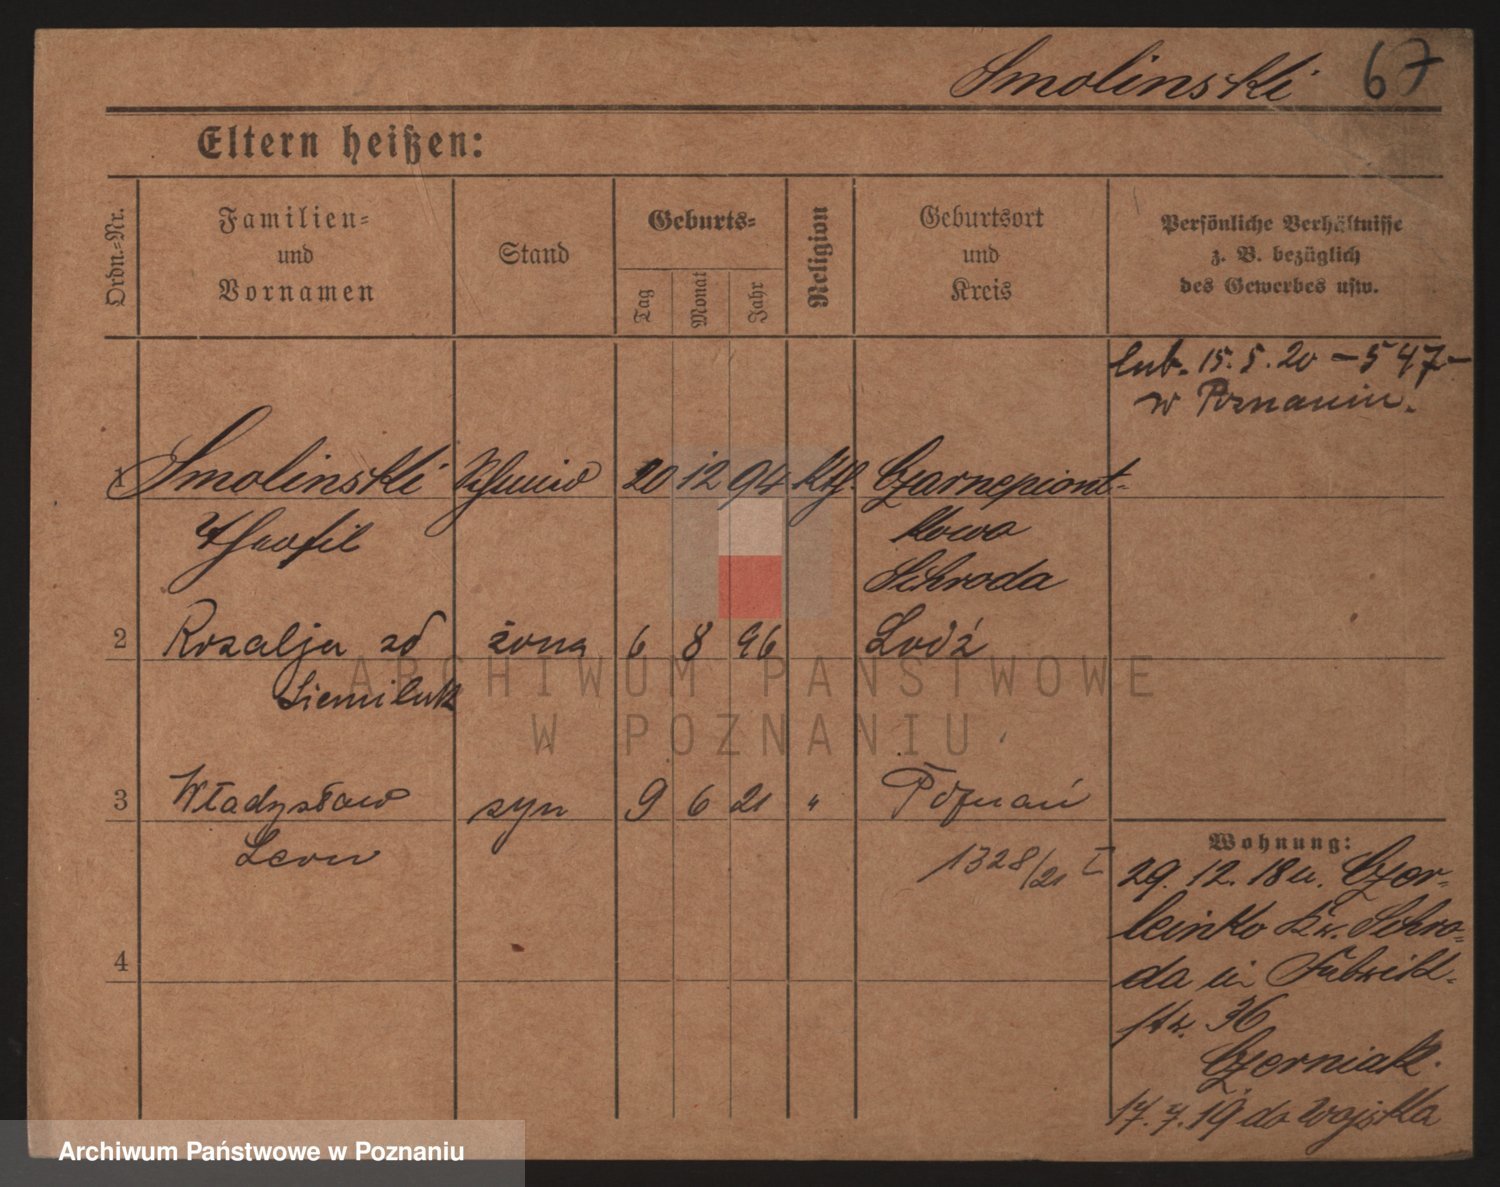 Smolinski 67
Eltern heißen:
Ordn.=Nr.
Familien=
und
Vornamen
Stand
Geburts=
Tag
Monat
Jahr
Religion
Geburtsort
und
Kreis
Persönliche Verhältnisse
z. B. bezüglich
des Gewerbes usw.
lub. 15. 5. 20 – 547 –
w Poznaniu.
1 Smolinski 20 12 94 Kth. Czarnepiont-
Theofil kowo
Schroda
2 Rozalja zd żona 6 8 96 Lodź
Siemiluk
3 Władysław syn 9 6 21 " Poznań
Leon 1328/21 I
4
Wohnung:
29. 12. 18 u. Czer-
leinko Kr. Schro-
da in Fabrik-
str. 36
Czerniak.
17. 7. 19 do wojska
ARCHIWUM PAŃSTWOWE
W POZNANIU
Archiwum Państwowe w Poznaniu